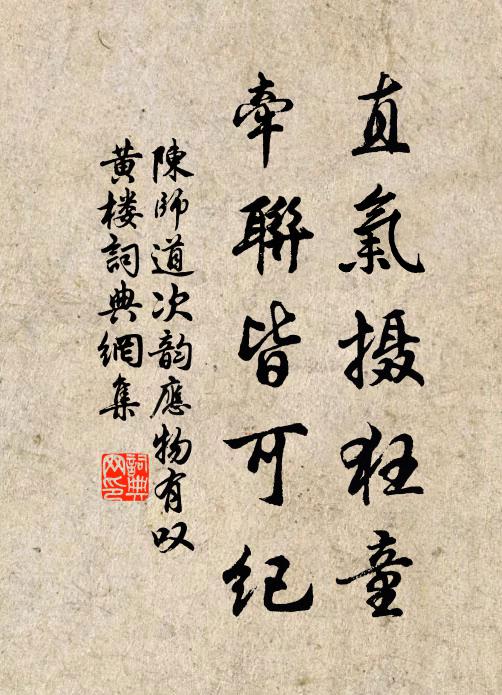 直氣摄狂童
牽聯皆可纪
陳師道次韵應物有叹
黄楼詞典網集
詞典網印